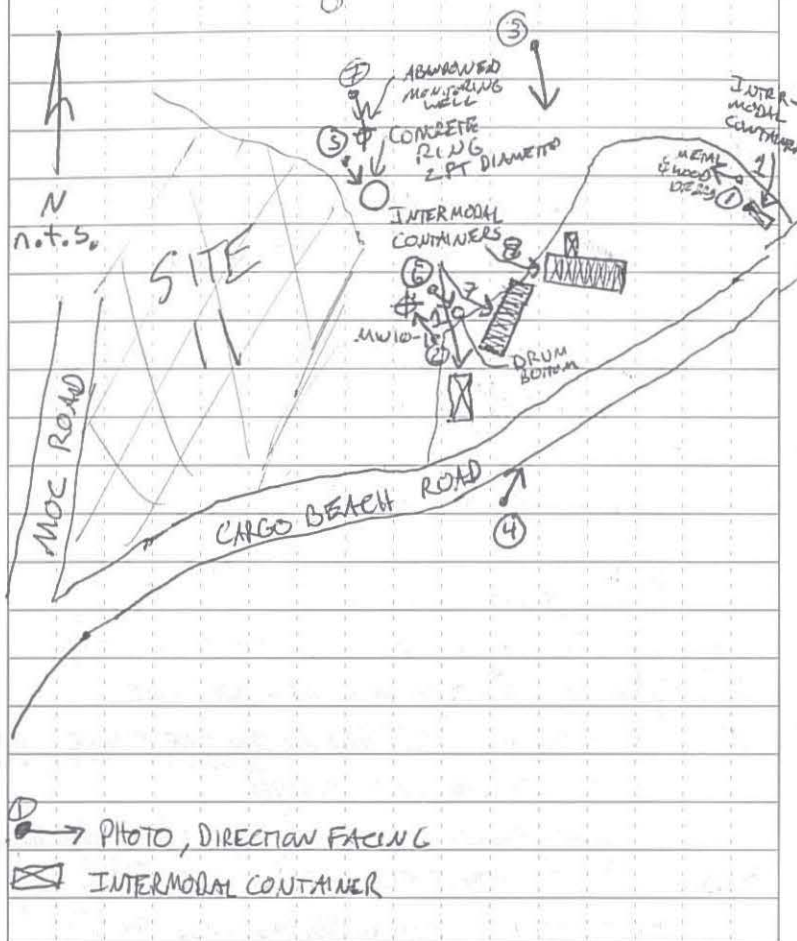 ③
⑦
ABANDONED
MONITORING
WELL
⑤
CONCRETE
RING
2 FT DIAMETER
INTER-
MODAL
CONTAINER
1
METAL
& WOOD
DEBRIS
①
N
n.t.s.
SITE
11
INTERMODAL
CONTAINERS
8
⑥
7
MW10-1
②
DRUM
BOTTOM
MOC ROAD
CARGO BEACH ROAD
④
①
PHOTO, DIRECTION FACING
INTERMODAL CONTAINER